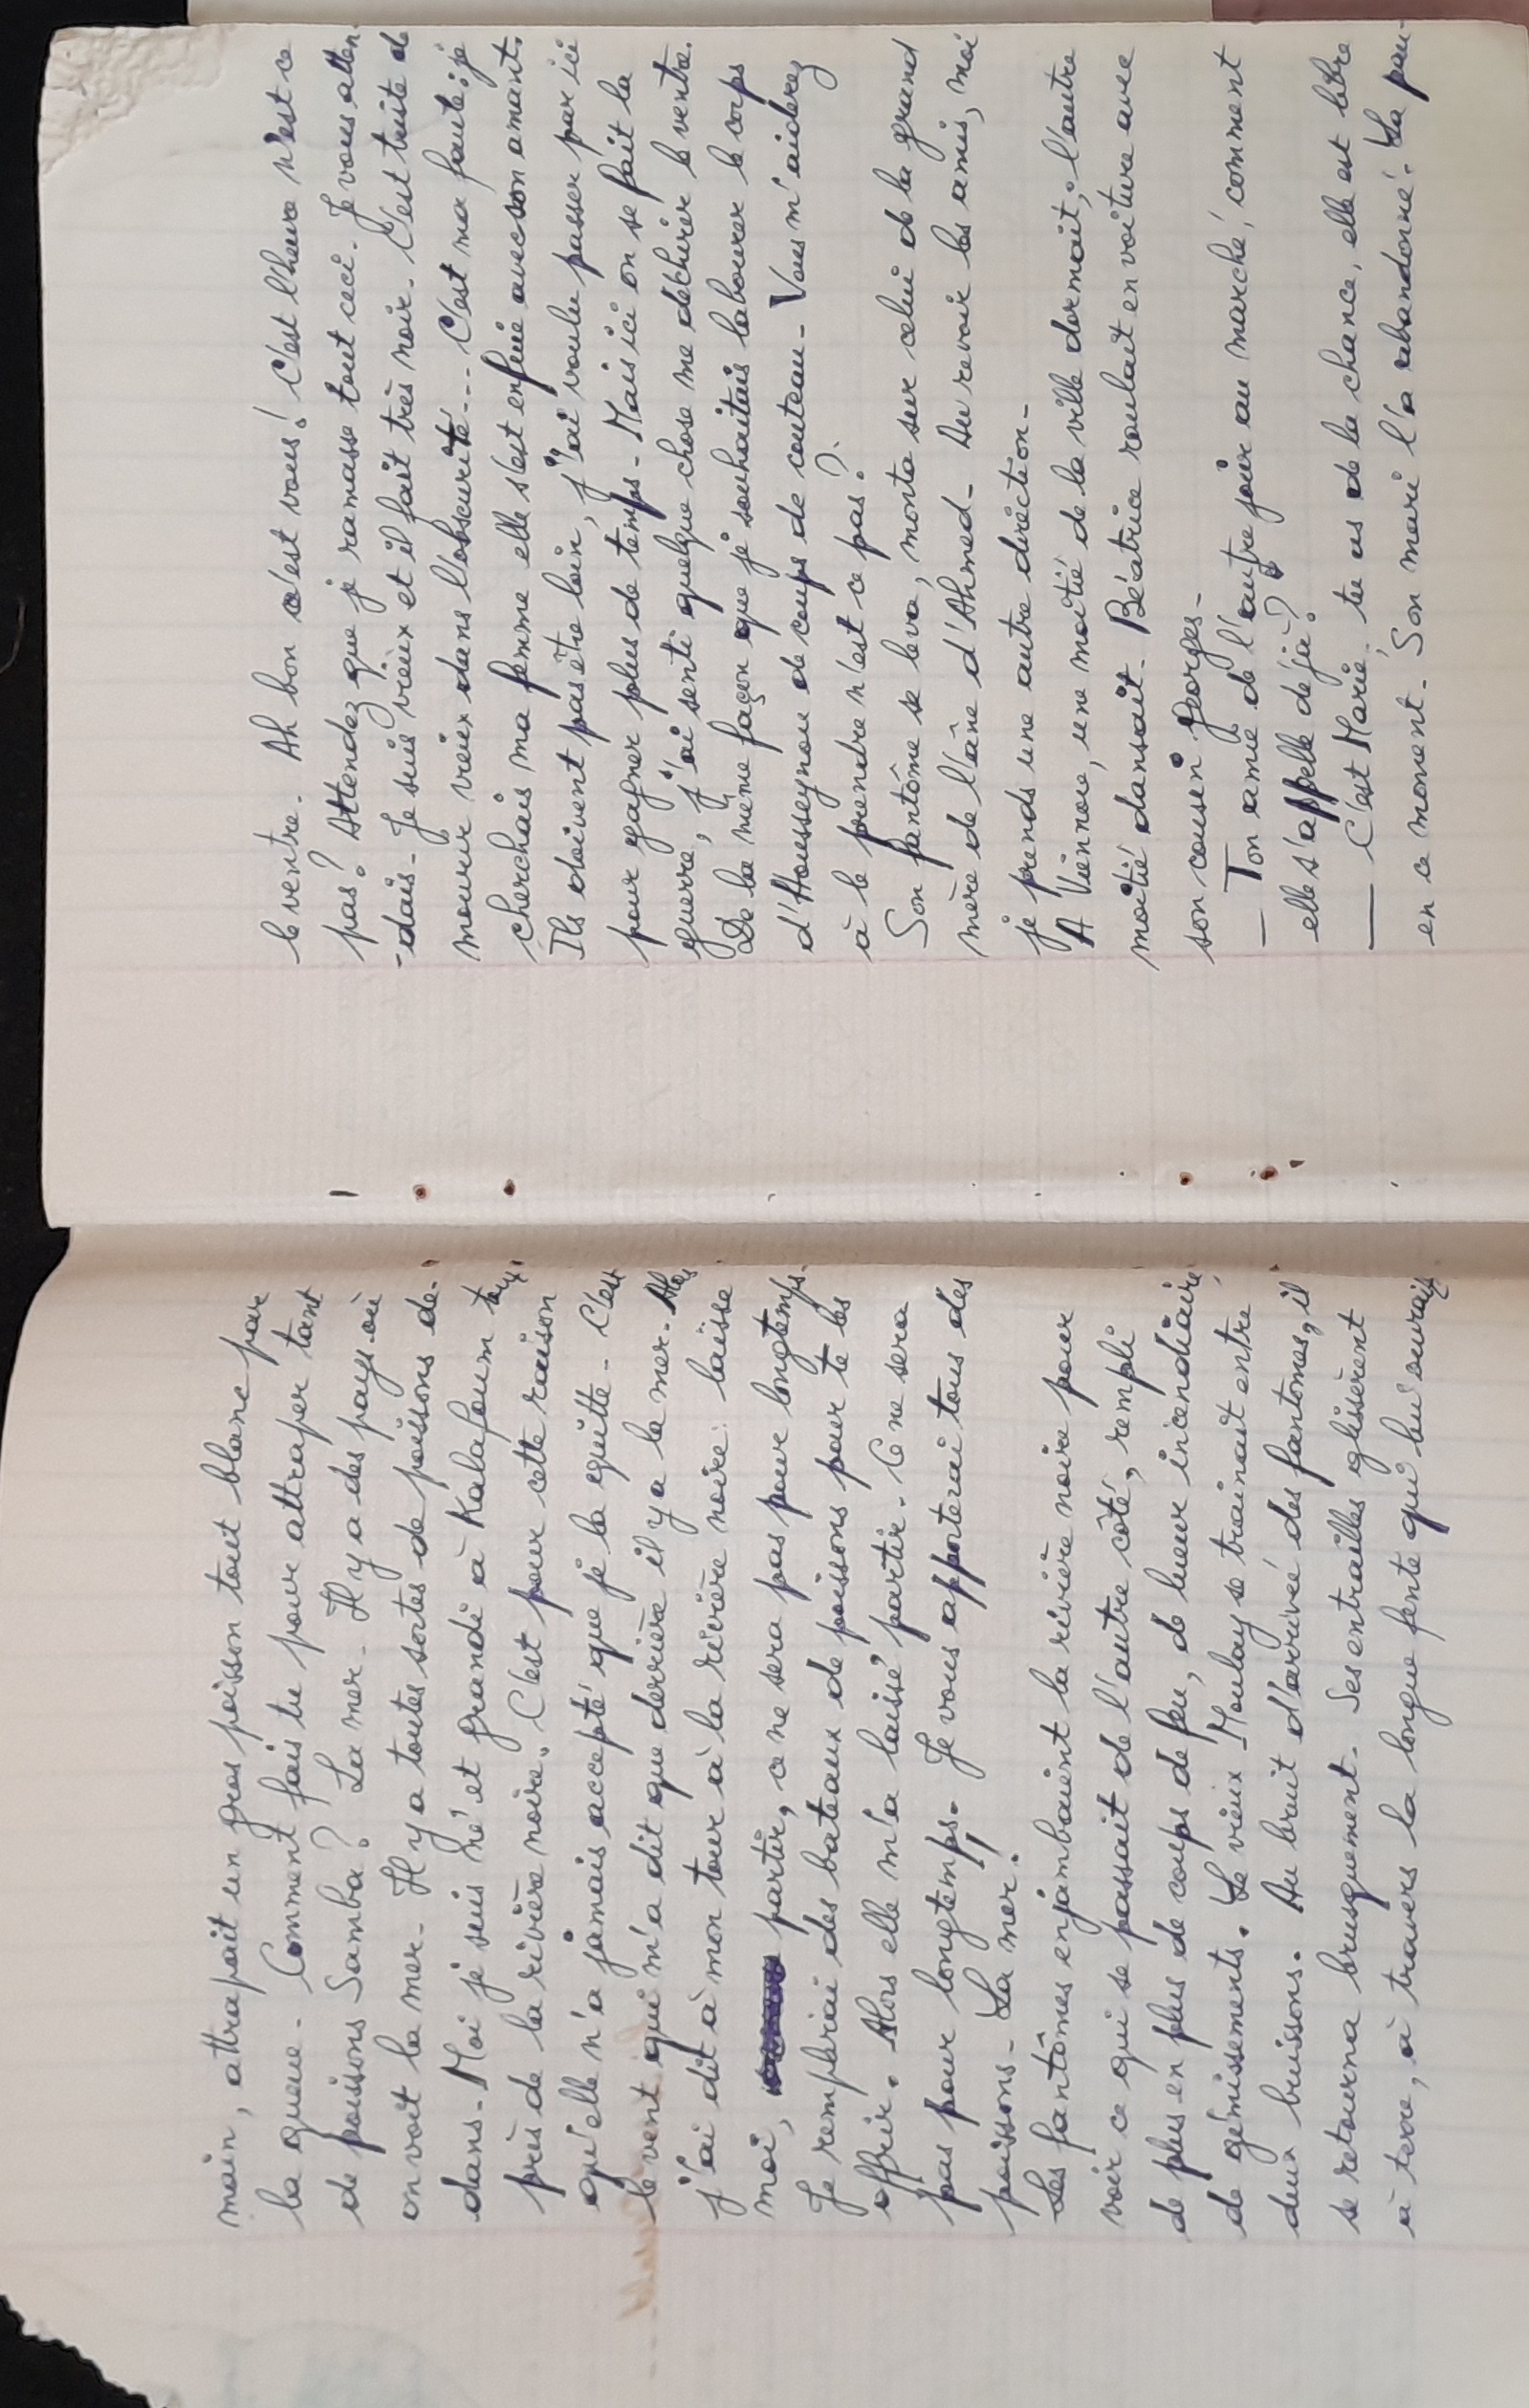 main, attrapait un gros poisson tout blanc par
la queue. Comment fais tu pour attraper tant
de poissons Samba? La mer. Il y a des pays où
on voit la mer. Il y a toutes sortes de poissons de-
dans. Moi je suis né et grandi à Kalafoum
près de la rivière noire. C'est pour cette raison
qu'elle n'a jamais accepté que je la quitte. C'est
le vent qui m'a dit que derrière il y a la mer. Alors
j'ai dit à mon tour à la rivière noire: laisse
moi, partir, ce ne sera pas pour longtemps.
Je remplirai des bateaux de poissons pour te les
offrir. Alors elle m'a laissé partir. Ce ne sera
pas pour longtemps. Je vous apporterai tous des
poissons. La mer!
Les fantômes enjambaient la rivière noire pour
voir ce qui se passait de l'autre côté, rempli
de plus en plus de coups de feu, de lueur incendiaire,
de gémissements. Le vieux Moulay se trainait entre
deux buissons. Au bruit d'arrivée des fantomes, il
se retourna brusquement. Ses entrailles glissèrent
à terre, à travers la longue fente qui lui ouvrait
le ventre. Ah bon c'est vous! C'est l'heure n'est ce
pas? Attendez que je ramasse tout ceci. Je vous atten
-dais. Je suis vieux et il fait très noir. C'est triste de
mourir vieux dans l'obscurité... C'est ma faute: je
cherchais ma femme elle s'est enfuie avec son amant.
Ils doivent pas être loin, j'ai voulu passer par ici
pour gagner plus de temps. Mais ici on se fait la
guerre, j'ai senti quelque chose me déchirer le ventre.
De la même façon que je souhaitais labourer le corps
d'Housseynou de coups de couteau. Vous m'aiderez
à le prendre n'est ce pas?
Son fantôme se leva, monta sur celui de la grand
mère de l'âne d'Ahmed. Au revoir les amis, moi
je prends une autre direction.
A Viennore, une moitié de la ville dormait, l'autre
moitié dansait. Béatrice roulait en voiture avec
son cousin Georges.
— Ton amie de l'autre jour au marché, comment
elle s'appelle déjà?
— C'est Marie. tu as de la chance, elle est libre
en ce moment. Son mari l'a abandonné. La pau-